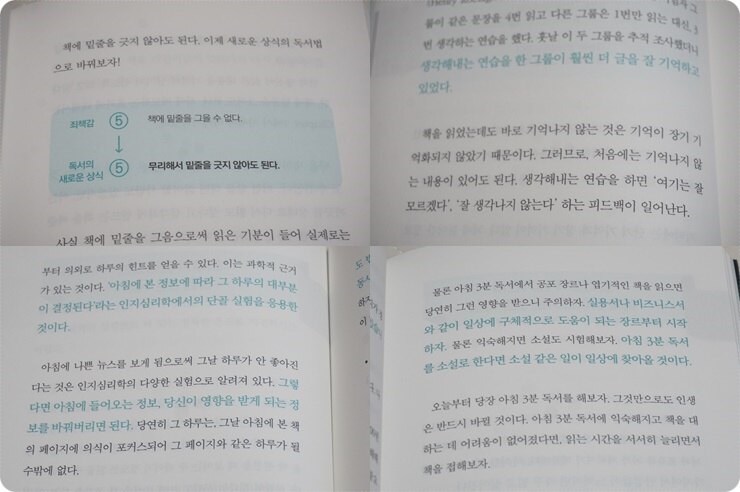 책에 밑줄을 긋지 않아도 된다. 이제 새로운 상식의 독서법
으로 바꿔보자!
죄책감 ⑤ 책에 밑줄을 그을 수 없다.
독서의
새로운 상식 ⑤ 무리해서 밑줄을 긋지 않아도 된다.
사실 책에 밑줄을 그음으로써 읽은 기분이 들어 실제로는
룹이 같은 문장을 4번 읽고 다른 그룹은 1번만 읽는 대신, 3
번 생각하는 연습을 했다. 훗날 이 두 그룹을 추적 조사했더니
생각해내는 연습을 한 그룹이 훨씬 더 글을 잘 기억하고
있었다.
책을 읽었는데도 바로 기억나지 않는 것은 기억이 장기 기
억화되지 않았기 때문이다. 그러므로, 처음에는 기억나지 않
는 내용이 있어도 된다. 생각해내는 연습을 하면 ‘여기는 잘
모르겠다’, ‘잘 생각나지 않는다’ 하는 피드백이 일어난다.
부터 의외로 하루의 힌트를 얻을 수 있다. 이는 과학적 근거
가 있는 것이다. ‘아침에 본 정보에 따라 그 하루의 대부분
이 결정된다’라는 인지심리학에서의 단골 실험을 응용한
것이다.
아침에 나쁜 뉴스를 보게 됨으로써 그날 하루가 안 좋아진
다는 것은 인지심리학의 다양한 실험으로 알려져 있다. 그렇
다면 아침에 들어오는 정보, 당신이 영향을 받게 되는 정
보를 바꿔버리면 된다. 당연히 그 하루는, 그날 아침에 본 책
의 페이지에 의식이 포커스되어 그 페이지와 같은 하루가 될
수밖에 없다.
물론 아침 3분 독서에서 공포 장르나 엽기적인 책을 읽으면
당연히 그런 영향을 받으니 주의하자. 실용서나 비즈니스서
와 같이 일상에 구체적으로 도움이 되는 장르부터 시작
하자. 물론 익숙해지면 소설도 시험해보자. 아침 3분 독서
를 소설로 한다면 소설 같은 일이 일상에 찾아올 것이다.
오늘부터 당장 아침 3분 독서를 해보자. 그것만으로도 인생
은 반드시 바뀔 것이다. 아침 3분 독서에 익숙해지고 책을 대
하는 데 어려움이 없어졌다면, 읽는 시간을 서서히 늘리면서
책을 접해보자.